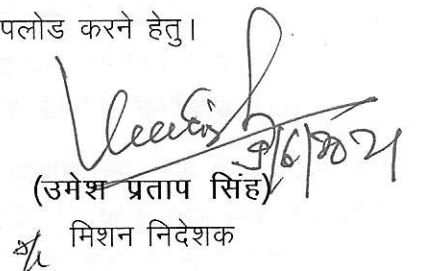 पलोड करने हेतु।
(उमेश प्रताप सिंह)
मिशन निदेशक